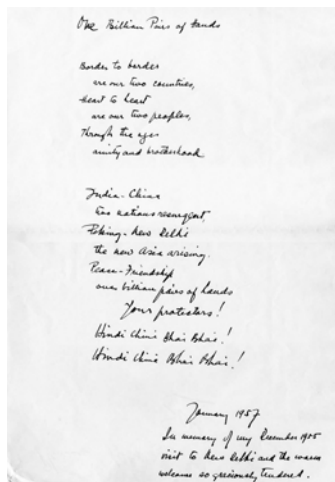 One Billion Pairs of Hands
Border to border
are our two countries,
Heart to heart
are our two peoples,
Through the ages
amity and brotherhood
India-China
two nations resurgent,
Peking-New Delhi
the new Asia arising.
Peace-Friendship
one billion pairs of hands
Your protectors!
Hindi Chini Bhai Bhai!
Hindi Chini Bhai Bhai!
January 1957
In memory of my December 1955
visit to New Delhi and the warm
welcome so graciously tendered.